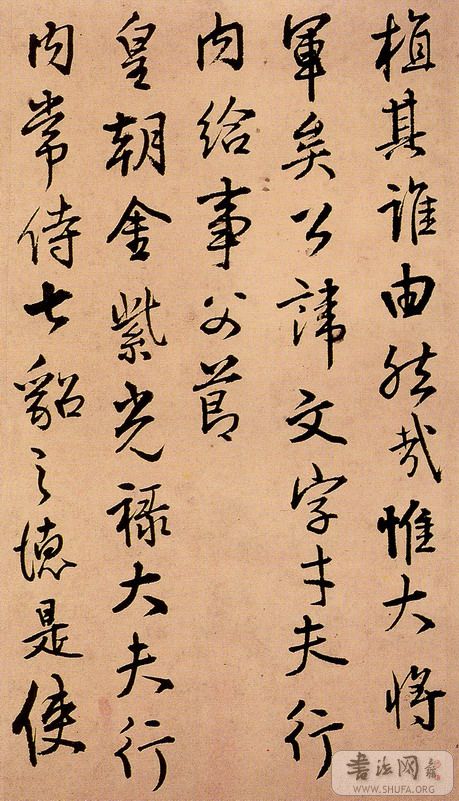 植其誰由然哉惟大將
軍矣公諱文字才夫行
内給事父節
皇朝金紫光祿大夫行
内常侍七貂之德是使
书法网
WWW.SHUFA.ORG